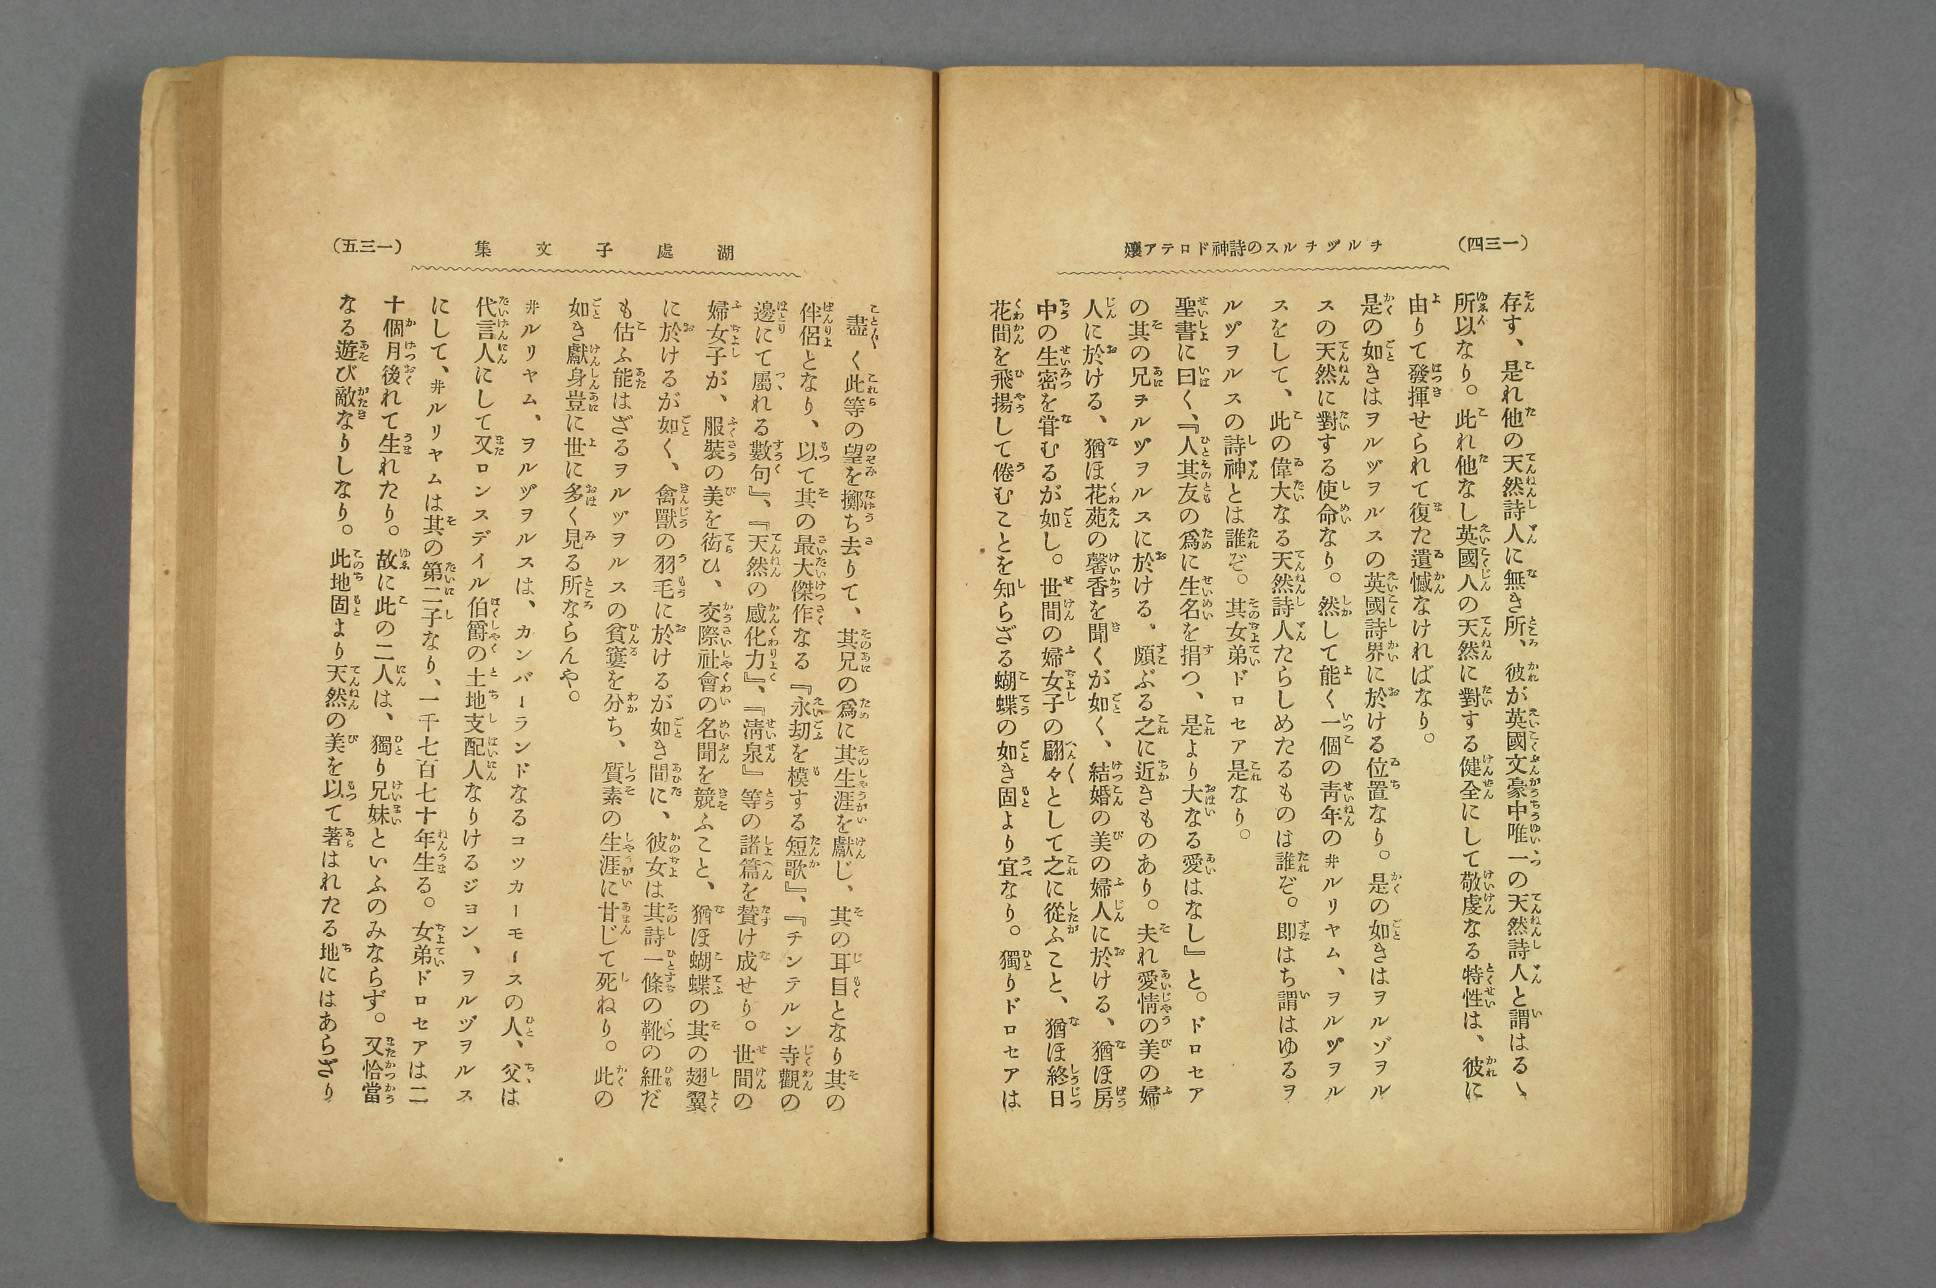 (一三四)
チルヅチルスの詩神ドロテア孃
存す、是れ他の天然詩人に無き所、彼が英國文豪中唯一の天然詩人と謂はるゝ
所以なり。此れ他なし英國人の天然に對する健全にして敬虔なる特性は、彼に
由りて發揮せられて復た遺憾なければなり。
是の如きはヲルヅヲルスの英國詩界に於ける位置なり。是の如きはヲルゾヲル
スの天然に對する使命なり。然して能く一個の靑年のヰルリヤム、ヲルヅヲル
スをして、此の偉大なる天然詩人たらしめたるものは誰ぞ。即はち謂はゆるヲ
ルヅヲルスの詩神とは誰ぞ。其女弟ドロセア是なり。
聖書に曰く、『人其友の爲に生名を捐つ、是より大なる愛はなし』と。ドロセア
の其の兄ヲルヅヲルスに於ける。頗ぶる之に近きものあり。夫れ愛情の美の婦
人に於ける、猶ほ花苑の馨香を聞くが如く、結婚の美の婦人に於ける、猶ほ房
中の生密を甞むるが如し。世間の婦女子の翩々として之に從ふこと、猶ほ終日
花間を飛揚して倦むことを知らざる蝴蝶の如き固より宜なり。獨りドロセアは
湖處子文集
(一三五)
盡く此等の望を擲ち去りて、其兄の爲に其生涯を獻じ、其の耳目となり其の
伴侶となり、以て其の最大傑作なる『永刧を模する短歌』、『チンテルン寺觀の
邊にて屬れる數句』、『天然の感化力』、『淸泉』等の諸篇を賛け成せり。世間の
婦女子が、服裝の美を衒ひ、交際社會の名聞を競ふこと、猶ほ蝴蝶の其の翅翼
に於けるが如く、禽獸の羽毛に於けるが如き間に、彼女は其詩一條の靴の紐だ
も估ふ能はざるヲルヅヲルスの貧窶を分ち、質素の生涯に甘じて死ねり。此の
如き獻身豈に世に多く見る所ならんや。
ヰルリヤム、ヲルヅヲルスは、カンバーランドなるコッカーモースの人、父は
代言人にして又ロンスデイル伯爵の土地支配人なりけるジョン、ヲルヅヲルス
にして、ヰルリヤムは其の第二子なり、一千七百七十年生る。女弟ドロセアは二
十個月後れて生れたり。故に此の二人は、獨り兄妹といふのみならず。又恰當
なる遊び敵なりしなり。此地固より天然の美を以て著はれたる地にはあらざり